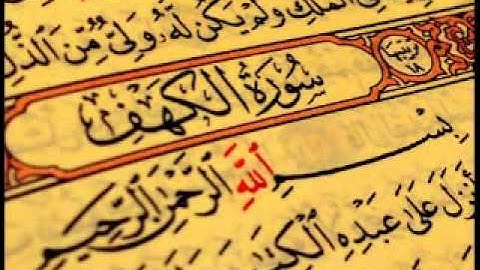 ٱلْمُلْكِ وَلَمْ يَكُن لَّهُۥ وَلِىٌّ مِّنَ ٱلذُّلِّ
سُورَةُ الكَهْفِ
بِسْمِ ٱللَّهِ ٱلرَّحْمَٰنِ ٱلرَّحِيمِ
أَنزَلَ عَلَىٰ عَبْدِهِ ٱلْكِتَٰ